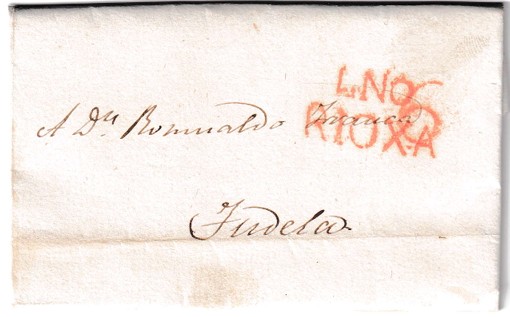 L.NO
RIOXA
A Dn. Romualdo Franca
Tudela